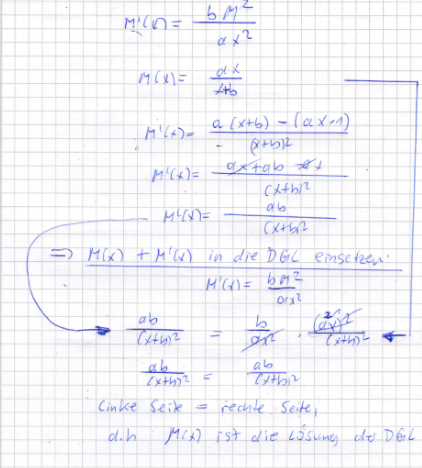 M'(x) = b M² / a x²
M(x) = ax / x+b
M'(x) = a (x+b) - (ax·1) / (x+b)²
M'(x) = ax + ab - ax / (x+b)²
M'(x) = ab / (x+b)²
=> M(x) + M'(x) in die DGL einsetzen:
M'(x) = b M² / ax²
ab / (x+b)² = b / ax² · (ax)² / (x+b)²
ab / (x+b)² = ab / (x+b)²
Linke Seite = rechte Seite,
d.h M(x) ist die Lösung der DGL